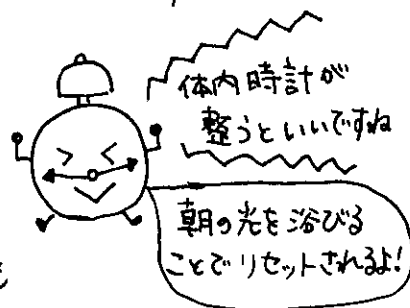 体内時計が
整うといいですね
朝の光を浴びる
ことでリセットされるよ!